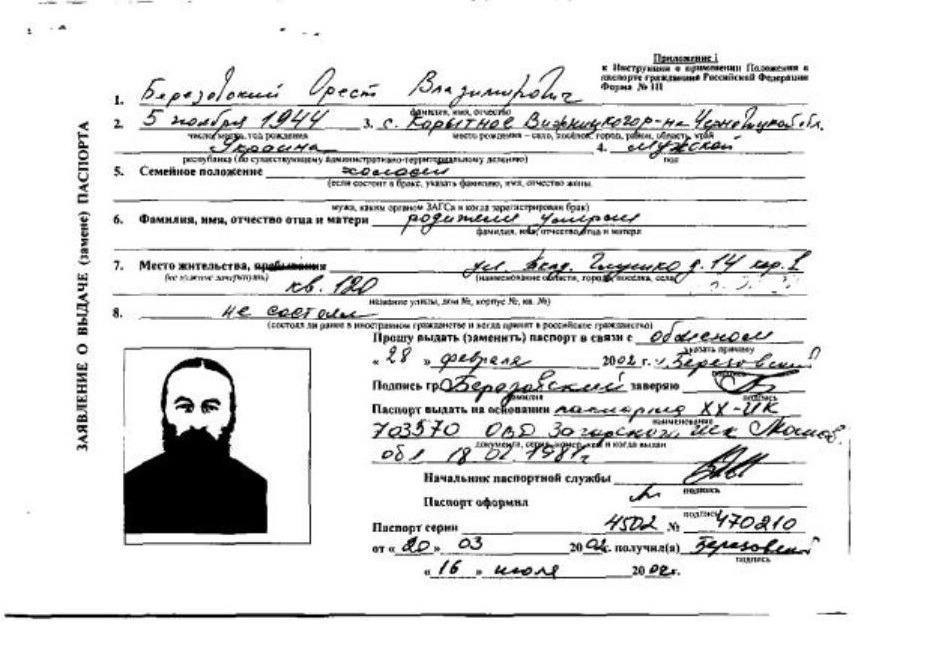 Приложение 1
к Инструкции о применении Положения о
паспорте гражданина Российской Федерации
Форма № 1П
ЗАЯВЛЕНИЕ О ВЫДАЧЕ (замене) ПАСПОРТА
1. Березовский Орест Владимирович
фамилия, имя, отчество
2. 5 ноября 1944 3. с. Корытное Вижницкого р-на Черновицкой обл.
число, месяц, год рождения место рождения – село, посёлок, город, район, область, край
Украина 4. Мужской
республика (по существующему административно-территориальному делению) пол
5. Семейное положение холост
(если состоит в браке, указать фамилию, имя, отчество жены,
мужа, каким органом ЗАГСа и когда зарегистрирован брак)
6. Фамилия, имя, отчество отца и матери родители умерли
фамилия, имя, отчество отца и матери
7. Место жительства, пребывания ул. Акад. Глушко д. 14 кор. 1
(ненужное зачеркнуть) (наименование области, города, поселка, села)
кв. 120
название улицы, дом №, корпус №, кв. №)
8. не состоял
(состоял ли ранее в иностранном гражданстве и когда принят в российское гражданство)
Прошу выдать (заменить) паспорт в связи с обменом
указать причину
« 28 » февраля 2002 г. Березовский
Подпись гр. Березовский заверяю
фамилия подпись
Паспорт выдать на основании паспорта XX-ИК
наименование
703570 ОВД Загорского
документа, серия, номер, кем и когда выдан
обл 18 02 198
Начальник паспортной службы
подпись
Паспорт оформил
подпись
Паспорт серии 4502 № 470210
от « 20 » 03 2002г. получил(а) Березовский
подпись
« 16 » июля 2002г.